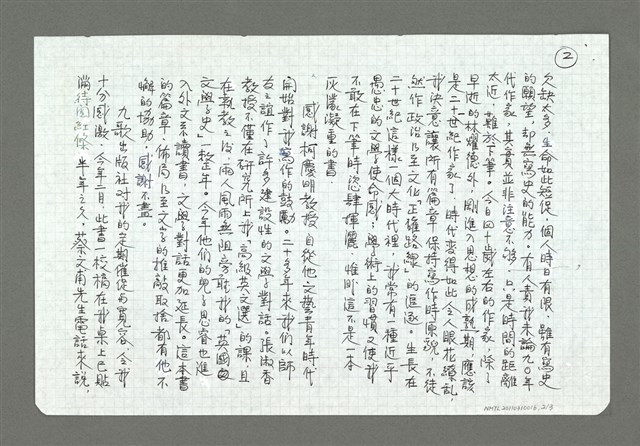 ②
欠缺太多,生命如此短促,個人時日有限,雖有寫史
的願望,却無寫史的能力。有人責我未論九○年
代作家,其實並非注意不够,只是時間的距離
太近,難於下筆。今日四十歲左右的作家,除了
早逝的林燿德外,剛進入思想的成熟期,應該
是二十世紀作家了,時代變得如此令人眼花繚亂,
我決意讓所有篇章保持寫作時原貌,不徒
然作政治乃至文化「正確路線」的追逐。生長在
二十世紀這樣一個大時代裡,我常有一種近乎
愚忠的文學使命感;學術上的習慣又使我
不敢在下筆時恣肆揮灑,惟盼這不是一本
灰濛凝重的書。
感謝柯慶明教授自從他文藝青年時代
開始對我寫作的鼓勵。二十多年來我們以師
友之誼作了許多建設性的文學對話。張淑香
教授不僅在研究所上我「高級英文選」的課,且
在執教之後,兩人風雨無阻旁聽我的「英國
文學史」一整年。今年他們的兒子思眷也進
入外文系讀書,文學對話更加延長。這本書
的篇章,佈局乃至文字的推敲取捨都有他不
懈的協助,感謝不盡。
九歌出版社對我的定期催促與寬容,令我
十分感激,今年二月,此書一校稿在我桌上已貼
滿待図紅條半年之久,蔡文甫先生電話來說,
NMTL20110610016, 2/3